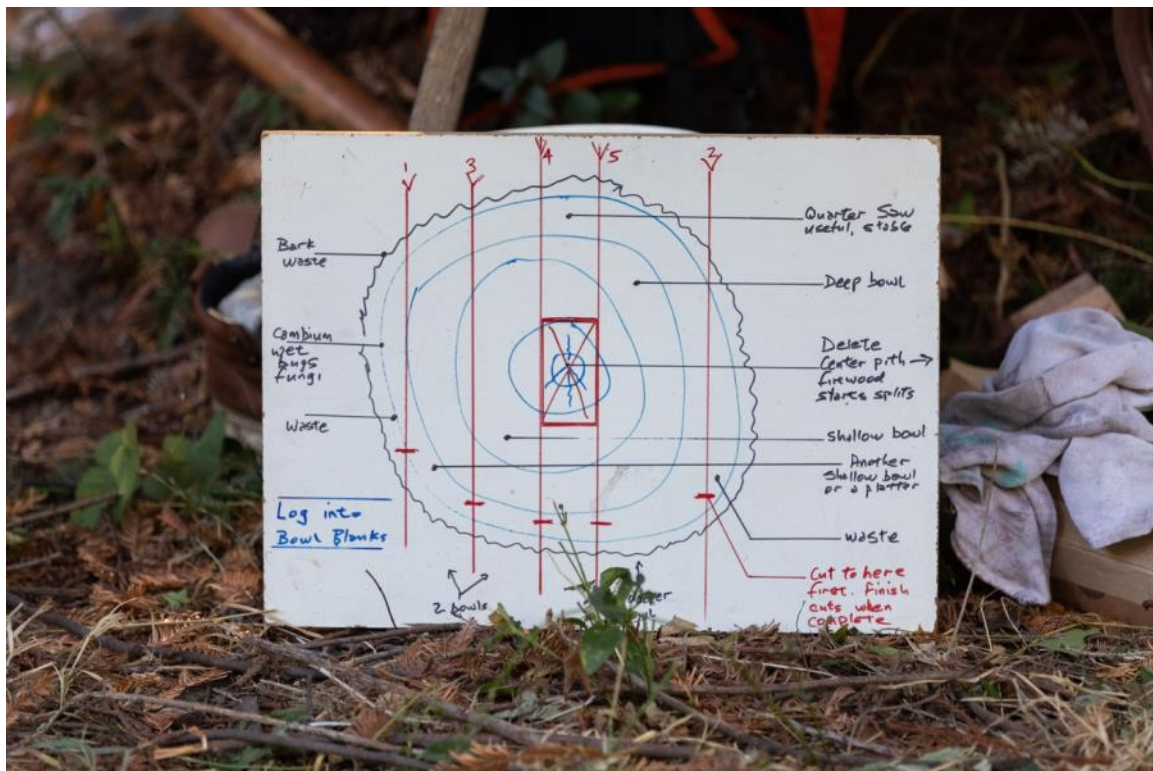 1
3
4
5
2
Bark
waste
Cambium
wet
bugs
fungi
waste
Log into
Bowl Blanks
2 bowls
Quarter Saw
useful, stable
Deep bowl
Delete
Center pith →
firewood
starts splits
shallow bowl
Another
shallow bowl
or a platter
waste
Cut to here
first. Finish
cuts when
complete